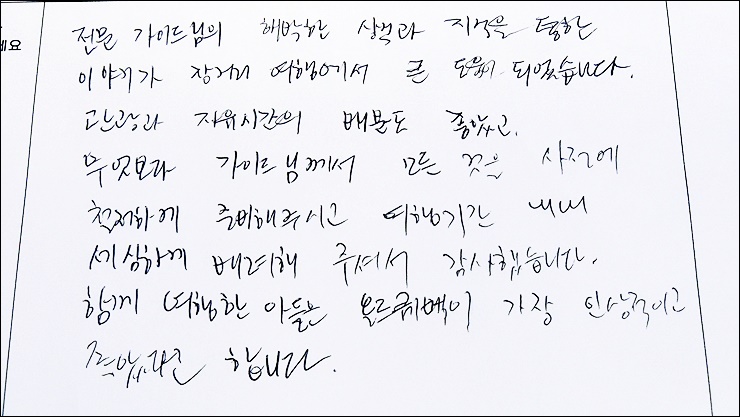 세요
전문 가이드님의 해박한 상식과 지식을 통한
이야기가 장거리 여행에서 큰 도움이 되었습니다.
관광과 자유시간의 배분도 좋았고,
무엇보다 가이드님께서 모든 것을 사전에
철저하게 준비해주시고 여행기간 내내
세심하게 배려해 주셔서 감사했습니다.
함께 여행한 아들은 몽드퀘벡이 가장 인상적이고
좋았다고 합니다.